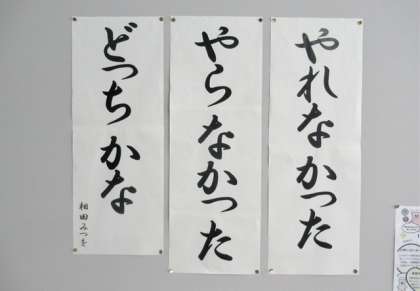 やれなかった
やらなかった
どっちかな
相田みつを